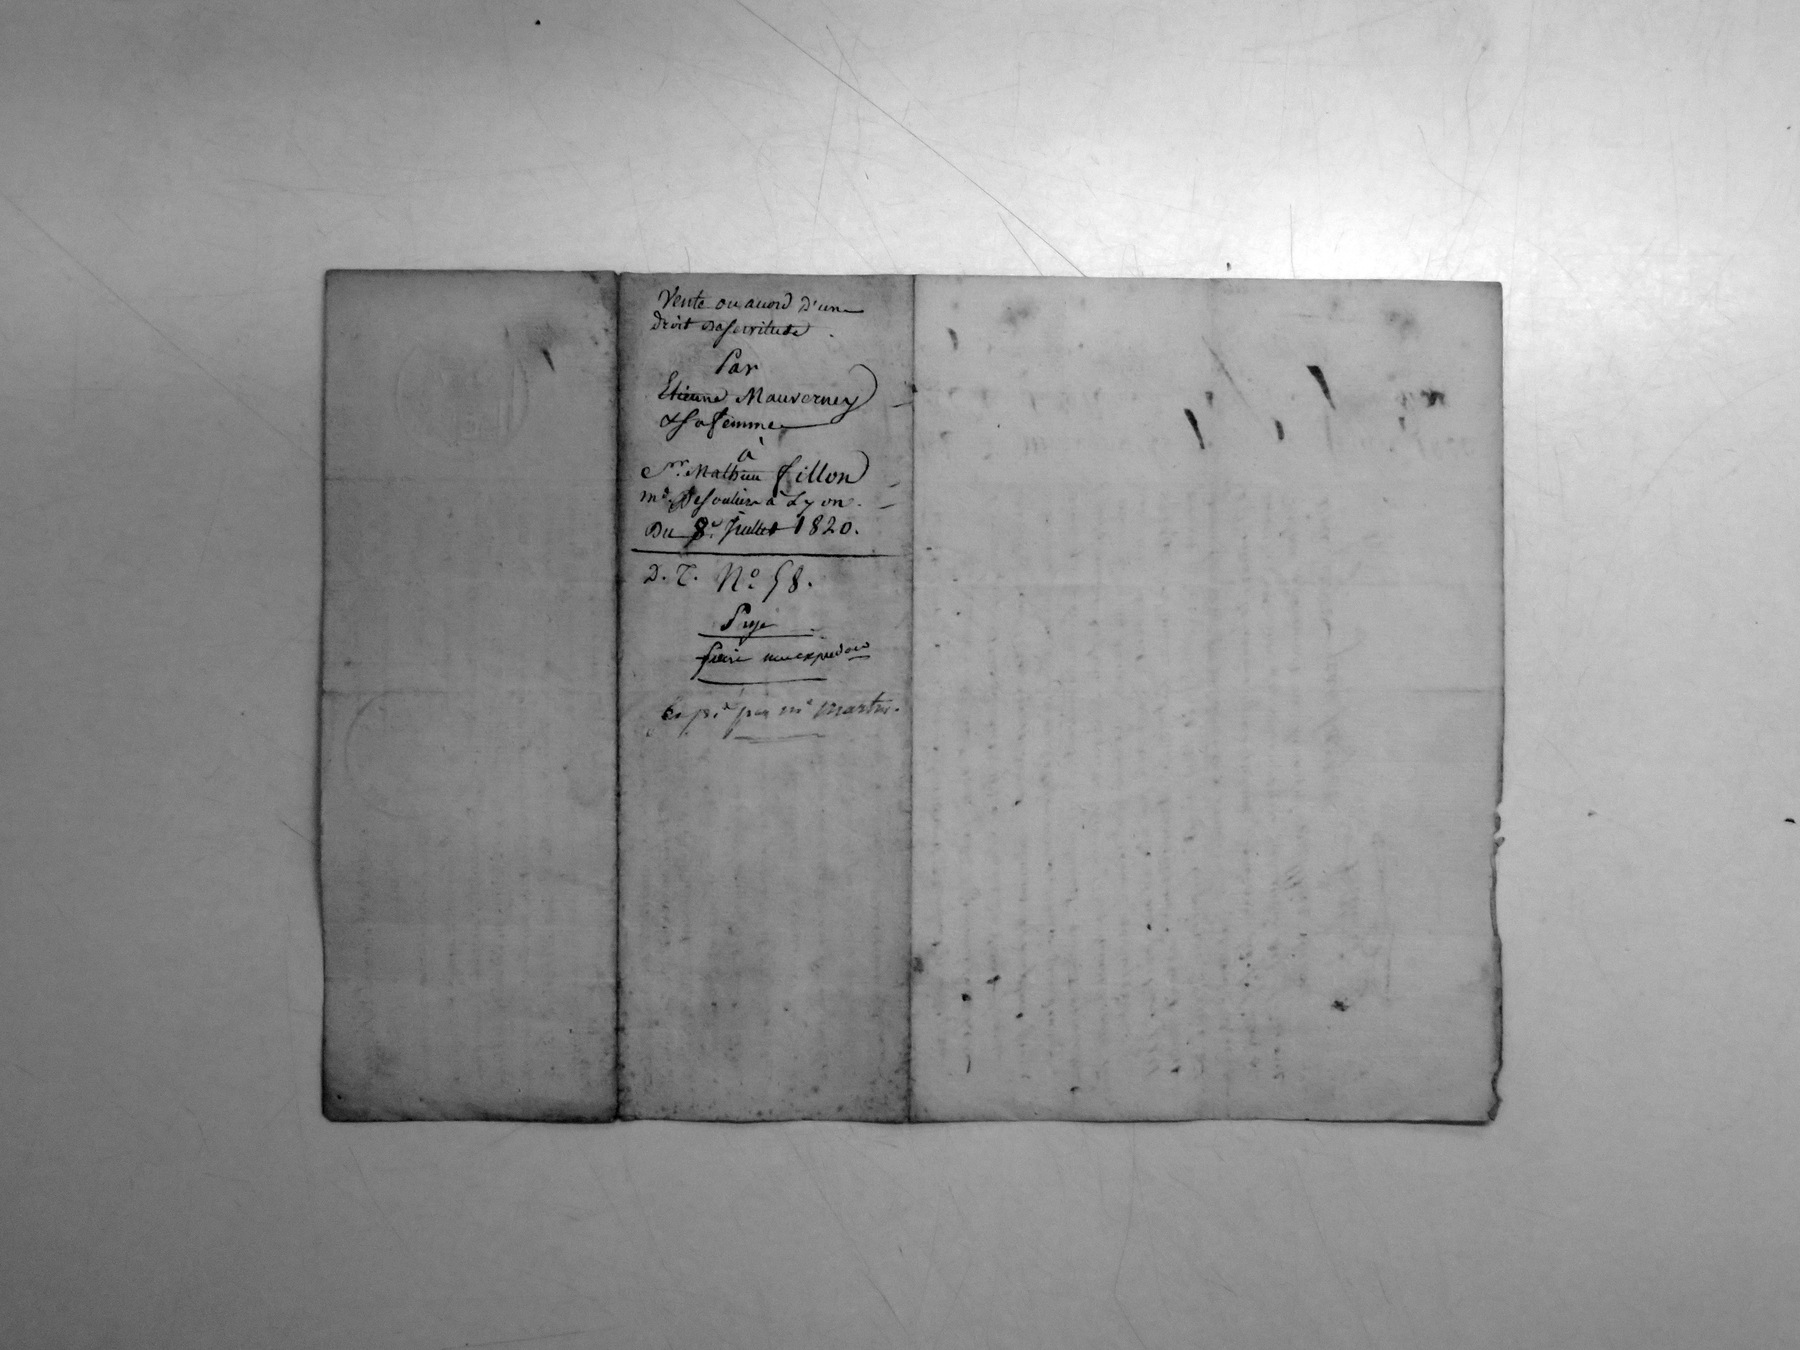 Vente ou accord D'une
droit De servitude
Par
Etienne Mauverney
& Sa femme
à
Sr. Mathieu fillon
md. De soulier à Lyon.
Du 8e. Juillet 1820.
D. T. No. 58.
faire une expedon
Expd. par me martin.